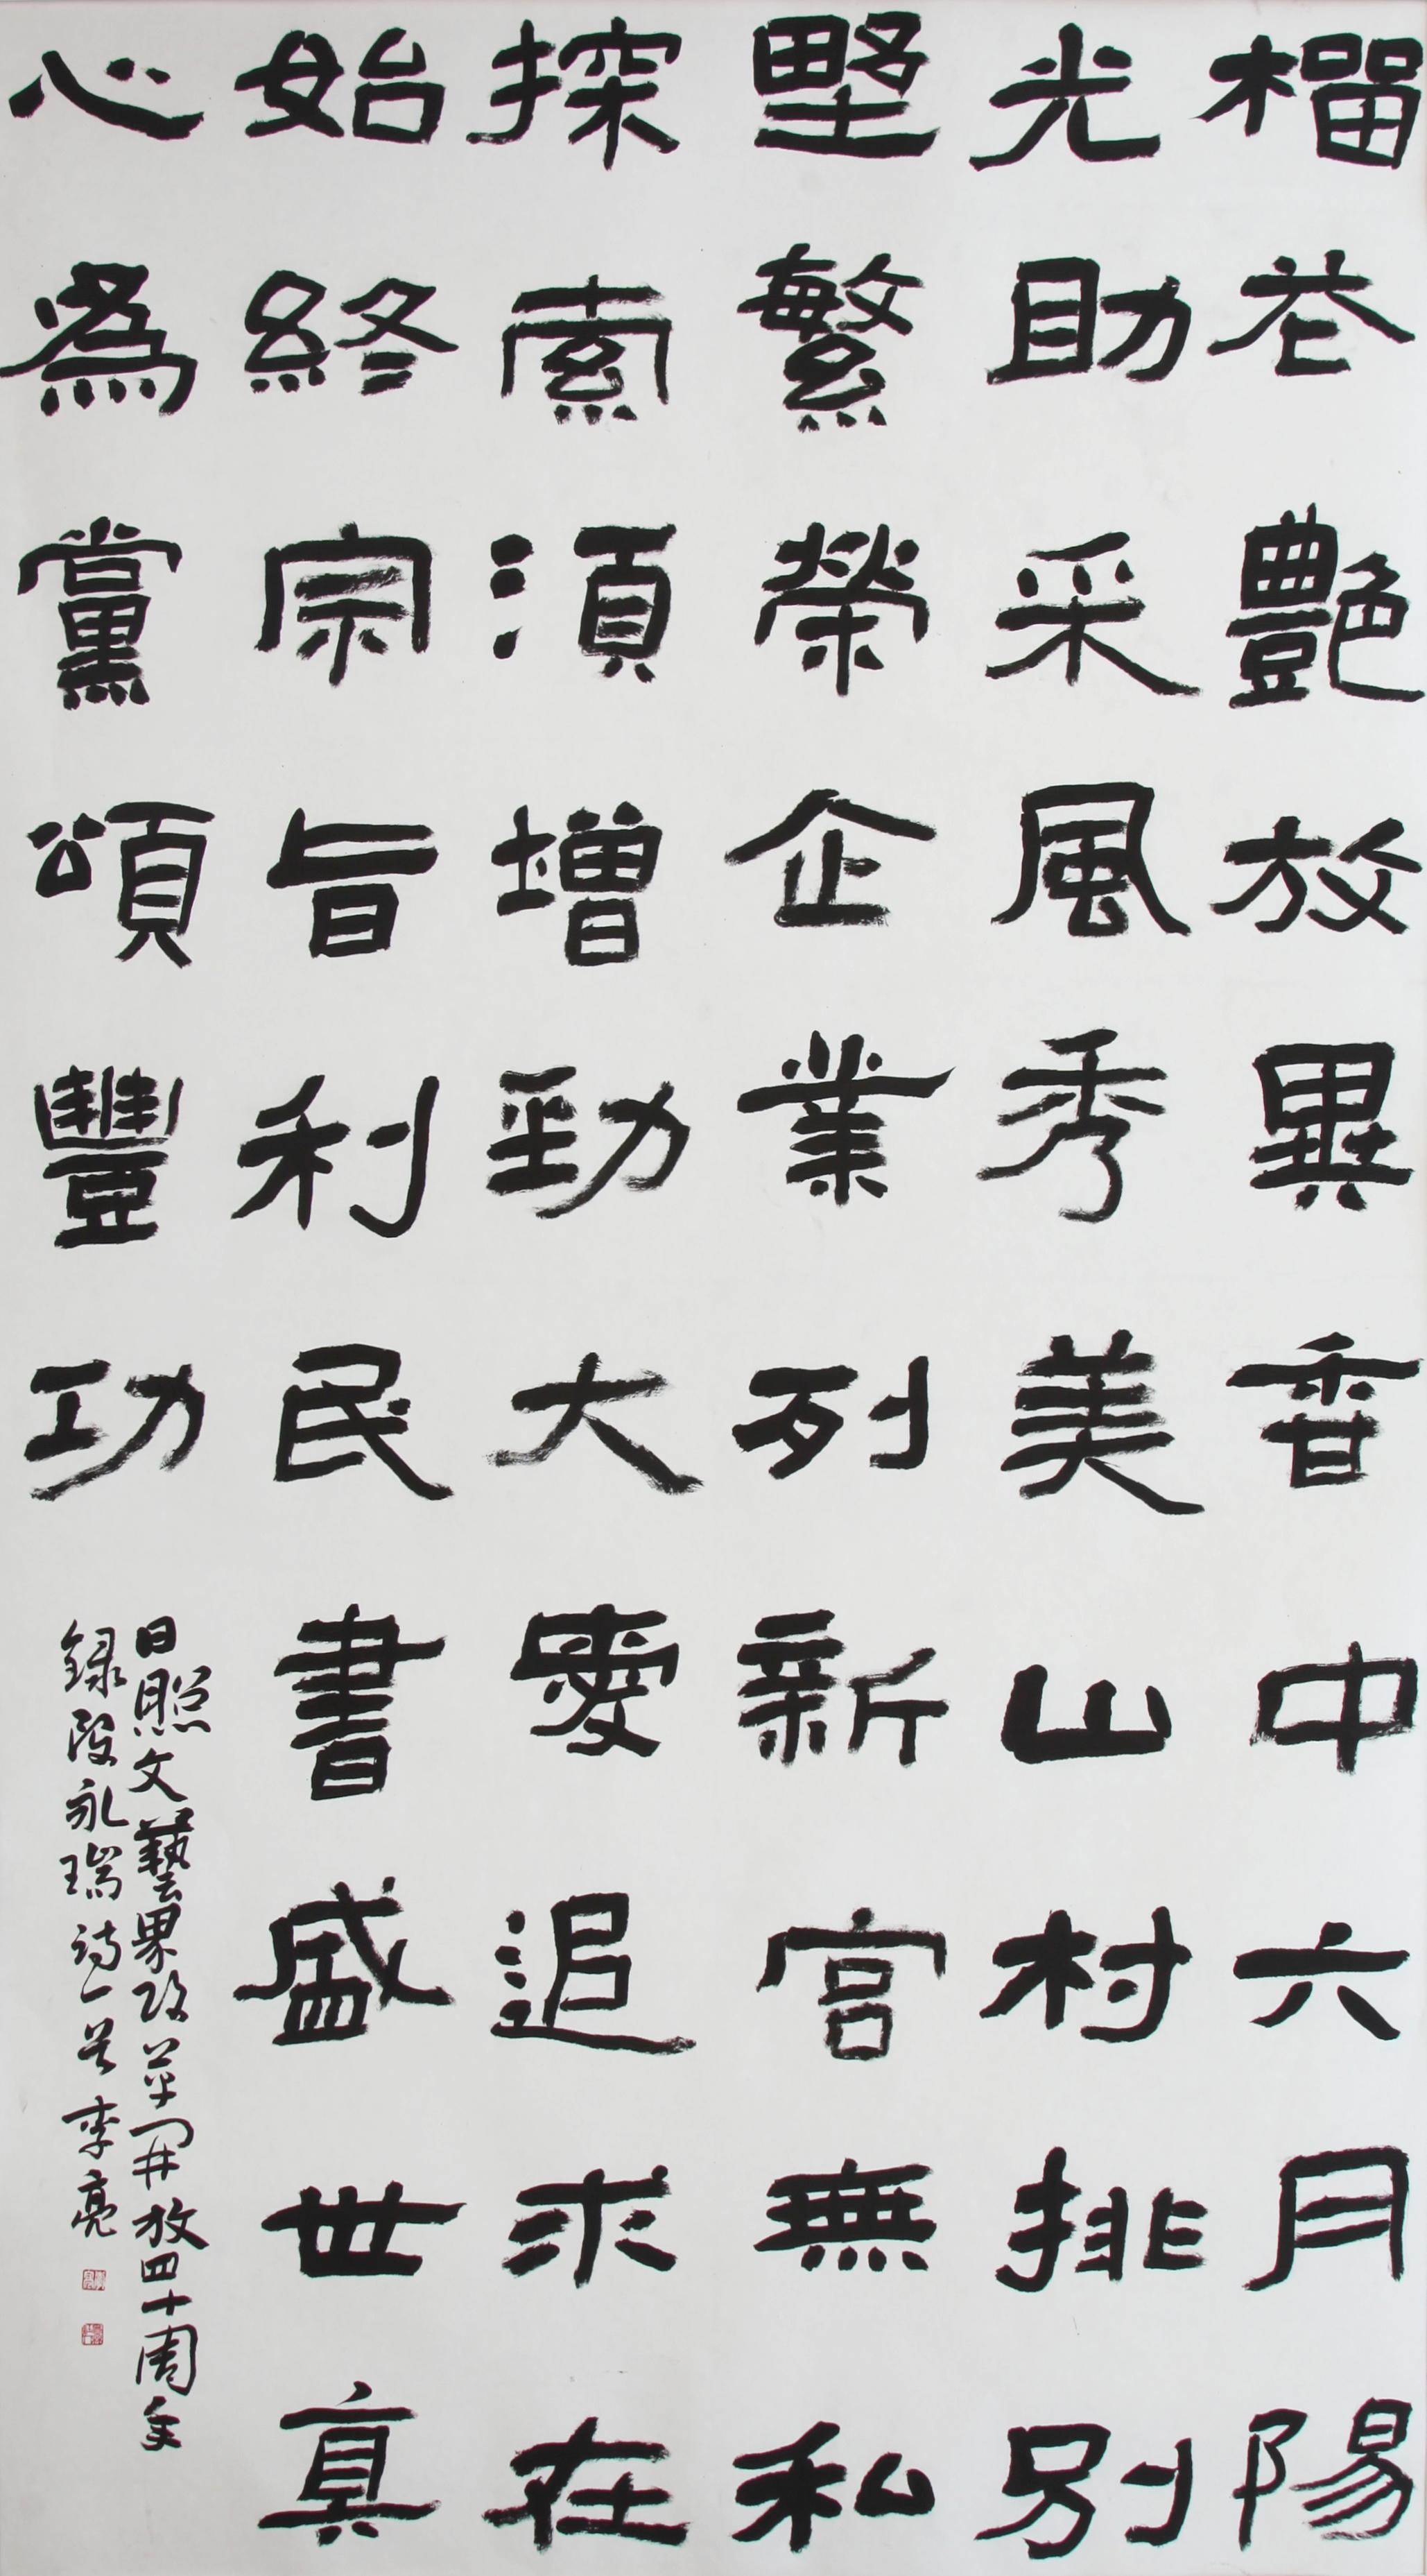 榴花艷放異香中六月陽
光助采風秀美山村排別
墅繁榮企業列新宮無私
探索須增勁大愛追求在
始終宗旨利民書盛世真
心為黨頌豐功
日照文藝界改革開放四十周年
錄段永瑞詩一首李亮